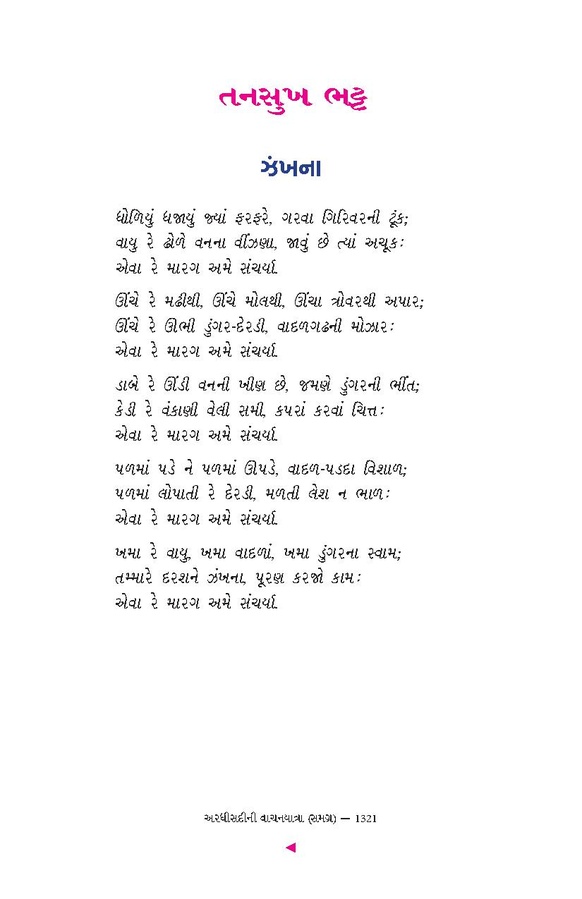 તનસુખ ભટ્ટ
ઝંખના
ધોળિયું ધજાયું જ્યાં ફરફરે, ગરવા ગિરિવરની ટૂંક;
વાયુ રે ઢોળે વનના વીંઝણા, જાવું છે ત્યાં અચૂક:
એવા રે મારગ અમે સંચર્યા.
ઊંચે રે મઢીથી, ઊંચે મોલથી, ઊંચા ત્રોવરથી અપાર;
ઊંચે રે ઊભી ડુંગર-દેરડી, વાદળગઢની મોઝાર:
એવા રે મારગ અમે સંચર્યા.
ડાબે રે ઊંડી વનની ખીણ છે, જમણે ડુંગરની ભીંત;
કેડી રે વંકાણી વેલી સમી, કપરાં કરવાં ચિત્ત:
એવા રે મારગ અમે સંચર્યા.
પળમાં પડે ને પળમાં ઊપડે, વાદળ-પડદા વિશાળ;
પળમાં લોપાતી રે દેરડી, મળતી લેશ ન ભાળ:
એવા રે મારગ અમે સંચર્યા.
ખમા રે વાયુ, ખમા વાદળાં, ખમા ડુંગરના સ્વામ;
તમ્મારે દરશને ઝંખના, પૂરણ કરજો કામ:
એવા રે મારગ અમે સંચર્યા.
અરધીસદીની વાચનયાત્રા (સમગ્ર) — 1321